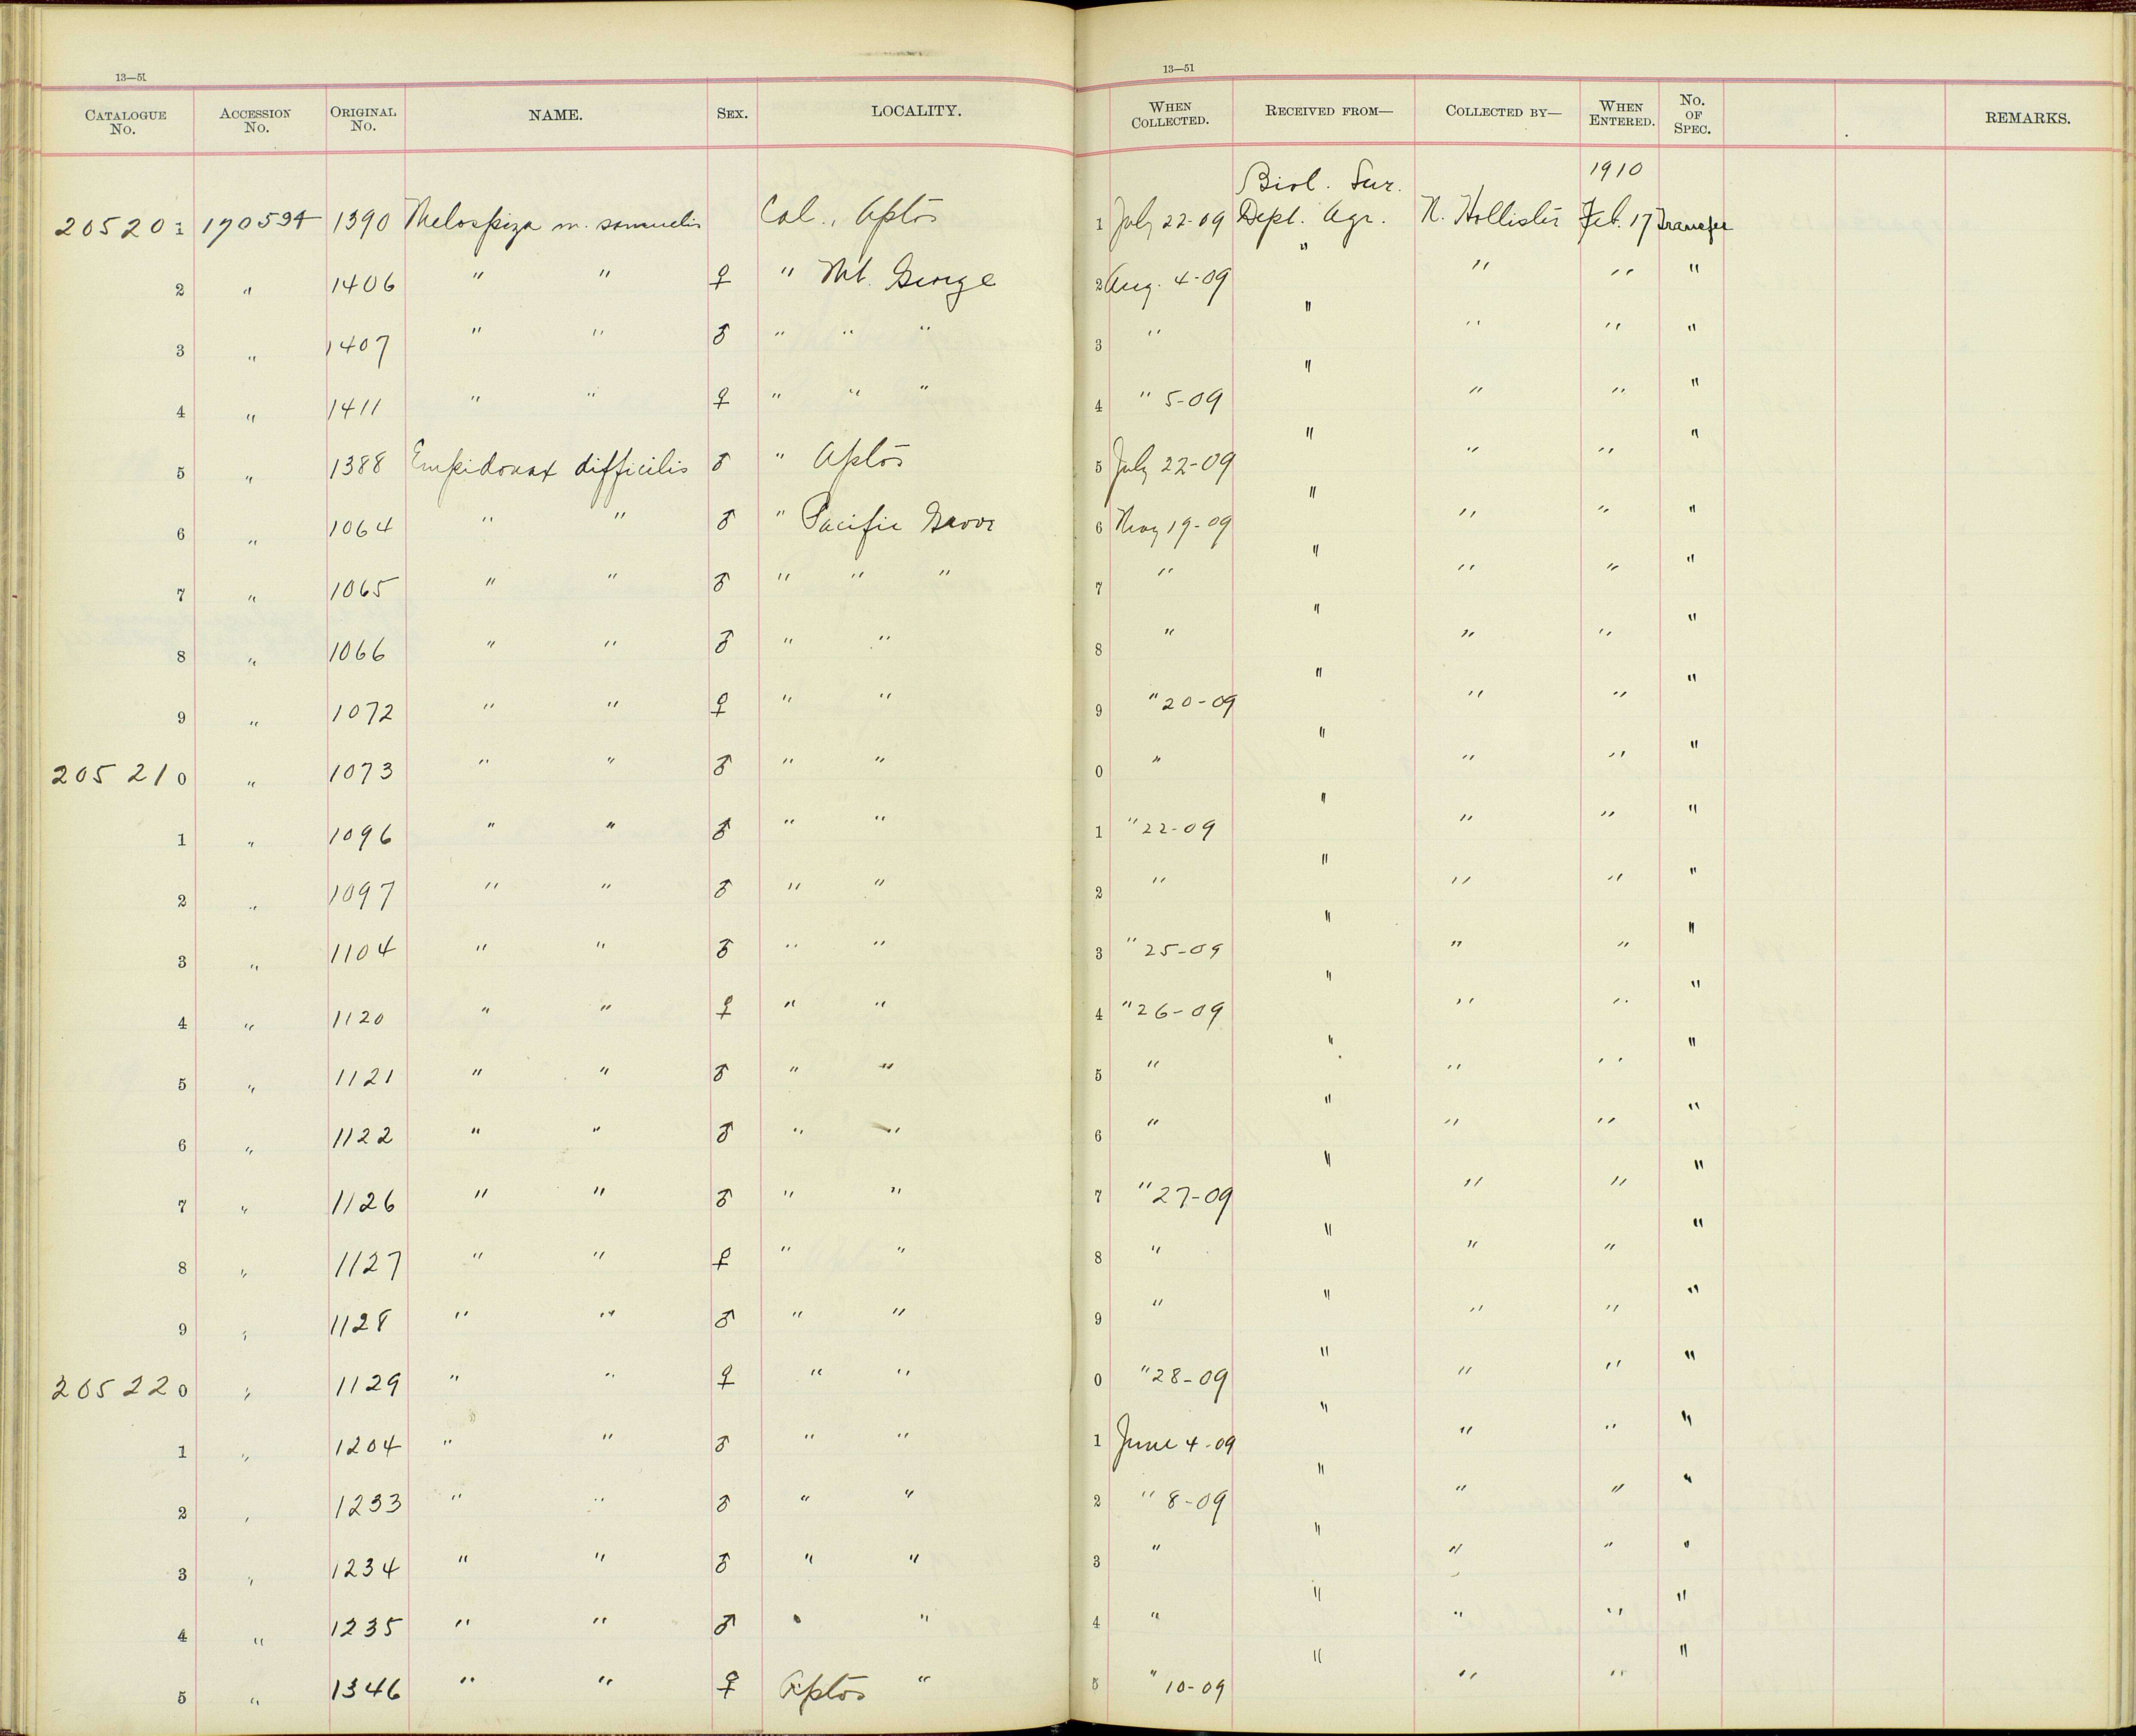 13—51
13—51
CATALOGUE No. ACCESSION No. ORIGINAL No. NAME. SEX. LOCALITY. WHEN COLLECTED. RECEIVED FROM— COLLECTED BY— WHEN ENTERED. No. OF SPEC. REMARKS.
Biol. Sur. 1910
205201 190594 1390 Melospiza m. samuelis Cal., Aptos 1 July 22-09 Dept. Agr. N. Hollister Feb. 17 Transfer
2 " 1406 " " ♀ " Mt. George 2 Aug. 4-09 " " " "
3 " 1407 " " ♂ " " " 3 " " " " "
4 " 1411 " " ♀ " " " 4 " 5-09 " " " "
5 " 1388 Empidonax difficilis ♂ " Aptos 5 July 22-09 " " " "
6 " 1064 " " ♂ " Pacific Grove 6 May 19-09 " " " "
7 " 1065 " " ♂ " " " 7 " " " " "
8 " 1066 " " ♂ " " 8 " " " " "
9 " 1072 " " ♀ " " 9 " 20-09 " " " "
205210 " 1073 " " ♂ " " 0 " " " " "
1 " 1096 " " ♂ " " 1 " 22-09 " " " "
2 " 1097 " " ♂ " " 2 " " " " "
3 " 1104 " " ♂ " " 3 " 25-09 " " " "
4 " 1120 " " ♀ " " 4 " 26-09 " " " "
5 " 1121 " " ♂ " " 5 " " " " "
6 " 1122 " " ♂ " " 6 " " " " "
7 " 1126 " " ♂ " " 7 " 27-09 " " " "
8 " 1127 " " ♀ " " 8 " " " " "
9 " 1128 " " ♂ " " 9 " " " " "
205220 " 1129 " " ♀ " " 0 " 28-09 " " " "
1 " 1204 " " ♂ " " 1 June 4-09 " " " "
2 " 1233 " " ♂ " " 2 " 8-09 " " " "
3 " 1234 " " ♂ " " 3 " " " " "
4 " 1235 " " ♂ " " 4 " " " " "
5 " 1346 " " ♀ Aptos " 5 " 10-09 " " " "